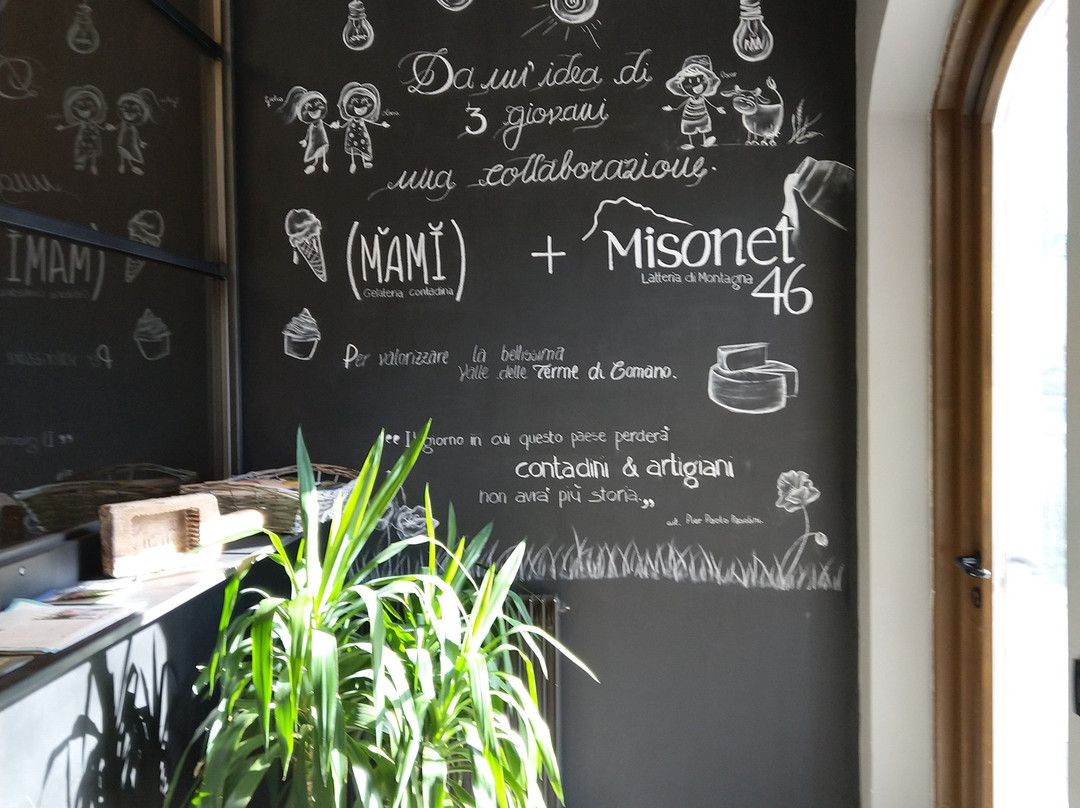 Da un'idea di
3 giovani
una collaborazione.
(MĂMĬ)
Gelateria contadina
+
Misonet
Latteria di Montagna
46
Per valorizzare la bellissima
Valle delle Terme di Comano.
"Il giorno in cui questo paese perderà
contadini & artigiani
non avrà più storia„
cit. Pier Paolo Pasolini